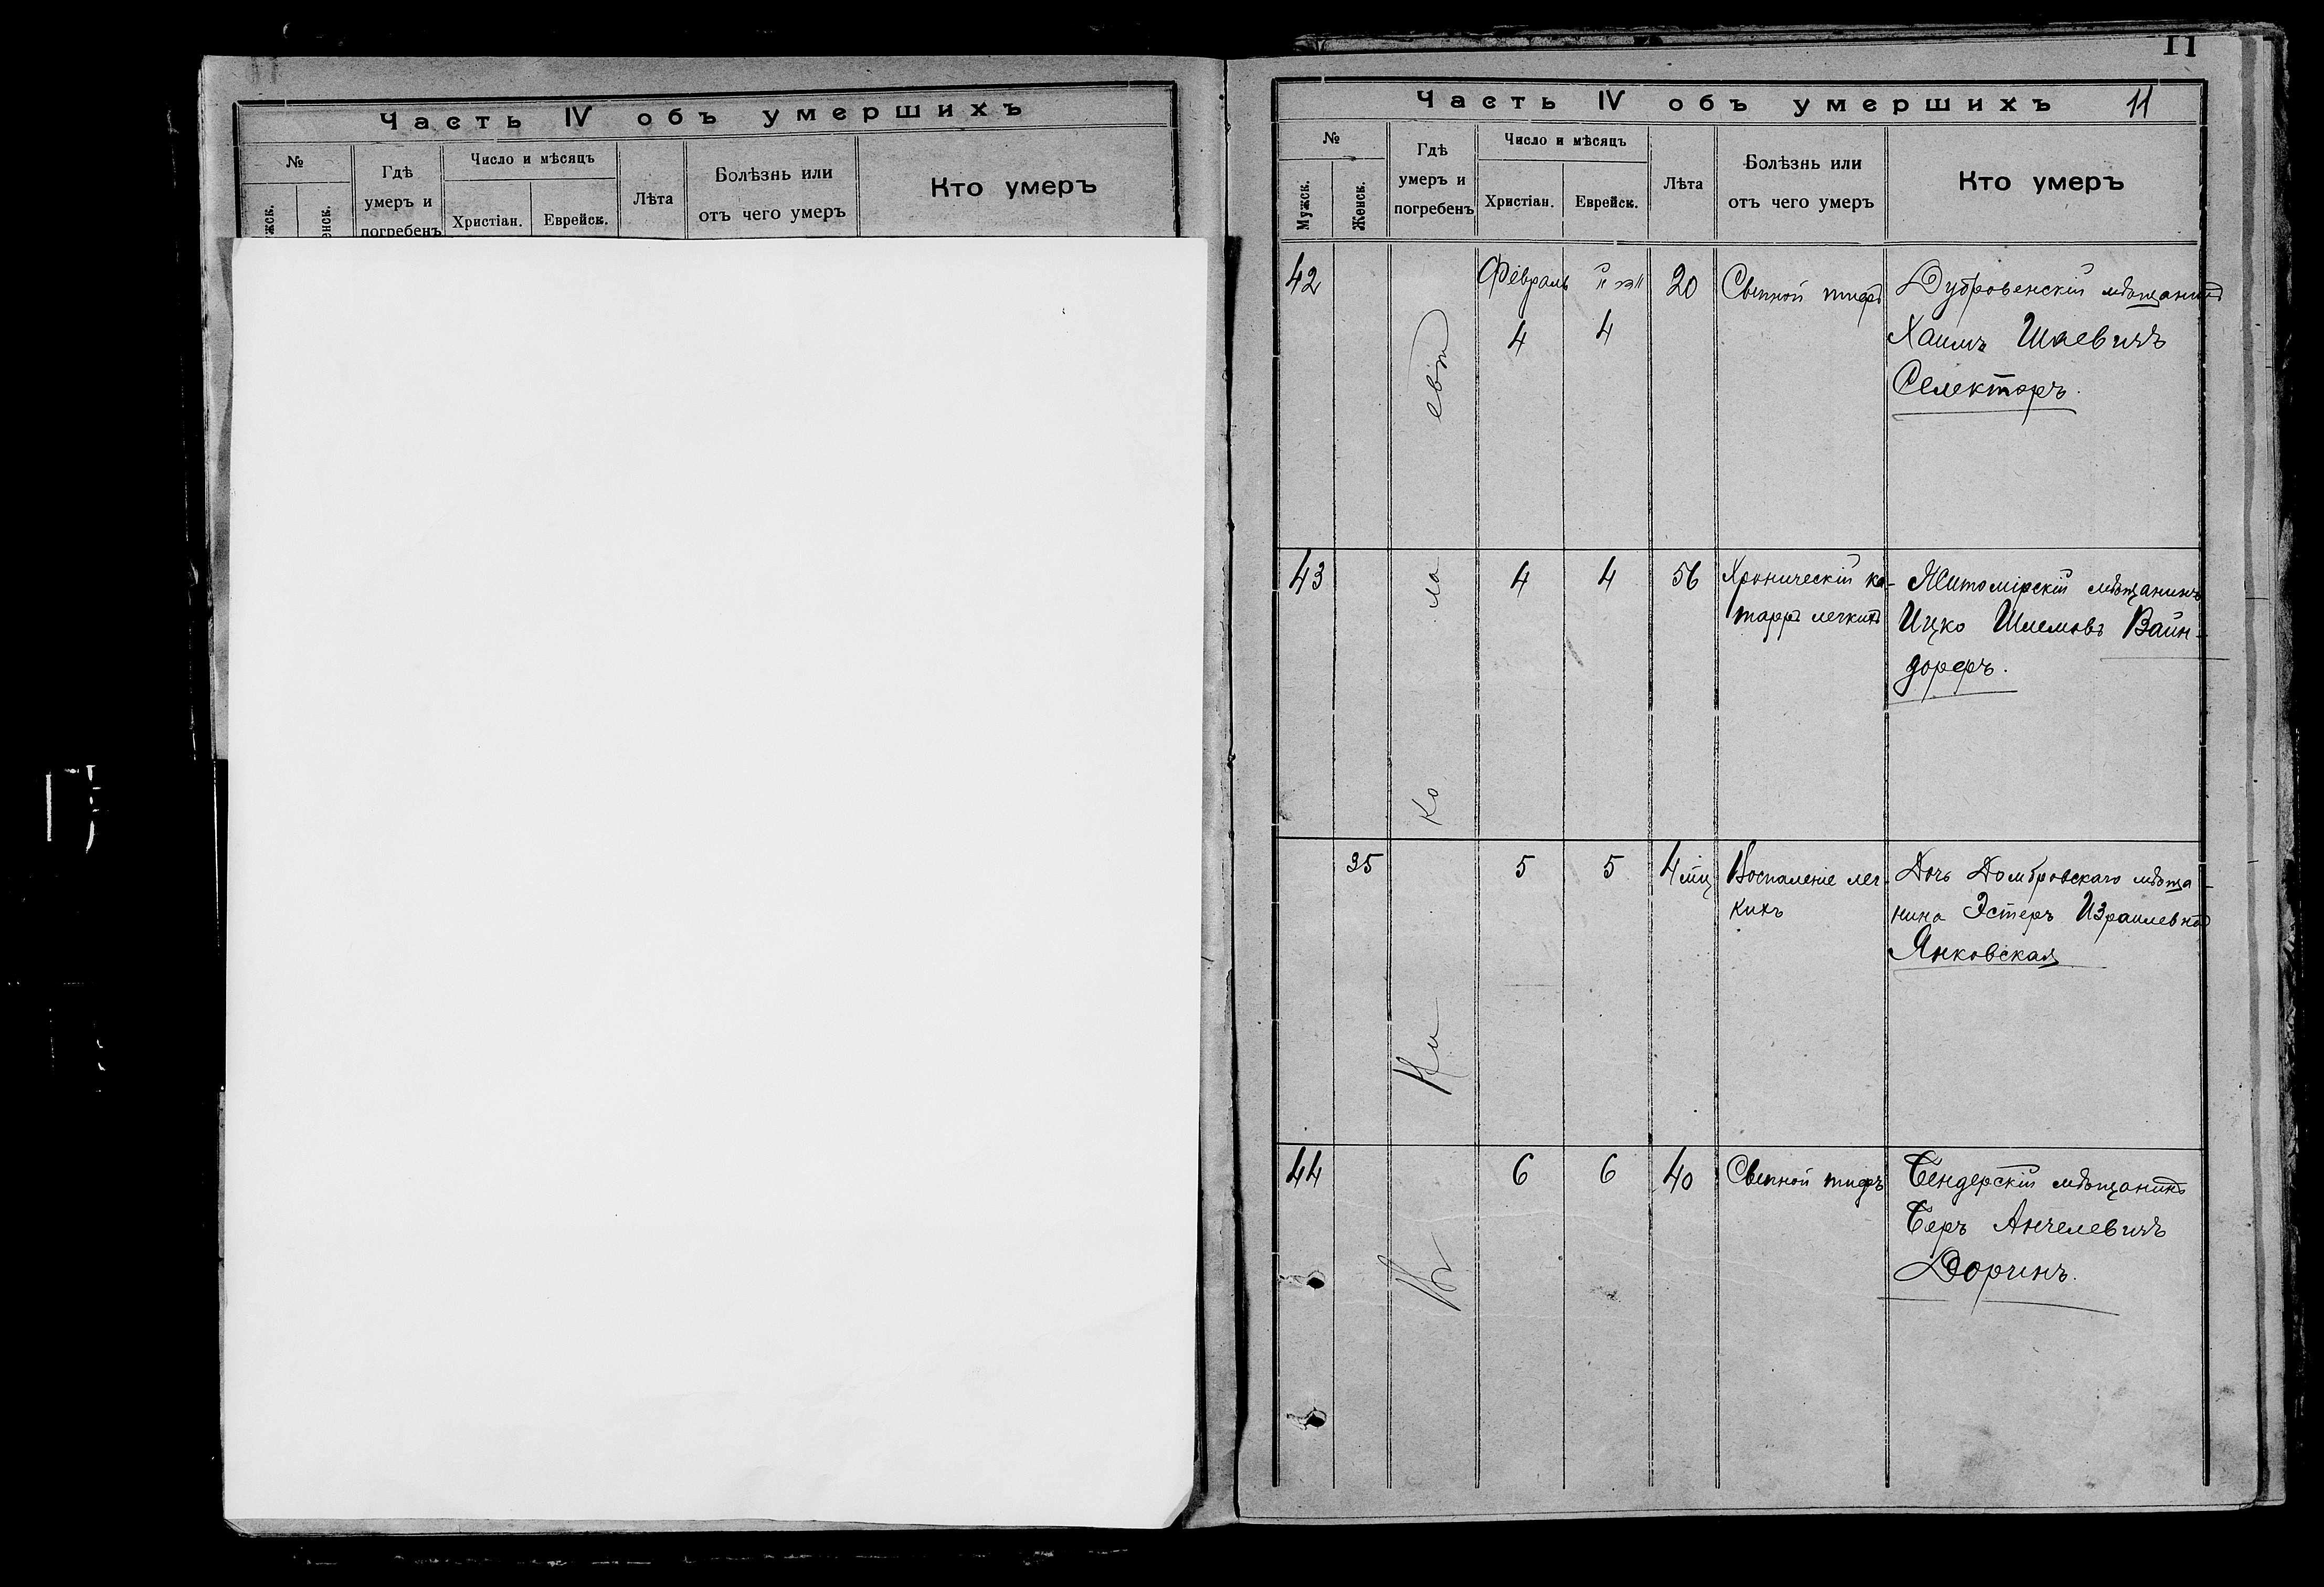 Часть IV объ умершихъ
№
Гдѣ
умеръ и
погребенъ
Число и мѣсяцъ
Христіан.
Еврейск.
Лѣта
Болѣзнь или
отъ чего умеръ
Кто умеръ
11
Часть IV объ умершихъ 11
№
Мужск.
Женск.
Гдѣ
умеръ и
погребенъ
Число и мѣсяцъ
Христіан.
Еврейск.
Лѣта
Болѣзнь или
отъ чего умеръ
Кто умеръ
42
Февраль
4
4
20
Сыпной тифъ
Дубровенскій мѣщанинъ
Хаимъ Шаевичъ
Селекторъ.
43
4
4
56
Хроническій ка-
тарръ легкихъ
Житомірскій мѣщанинъ
Ицко Шлемовъ Вайн-
дорфъ.
35
5
5
4 мѣц
Воспаленіе лег-
кихъ
Дочь Домбровскаго мѣща-
нина Эстеръ Израилевна
Янковская
44
6
6
40
Сыпной тифъ
Бендерскій мѣщанинъ
Беръ Анчелевичъ
Доринъ.
Въ Ни ко ла евѣ